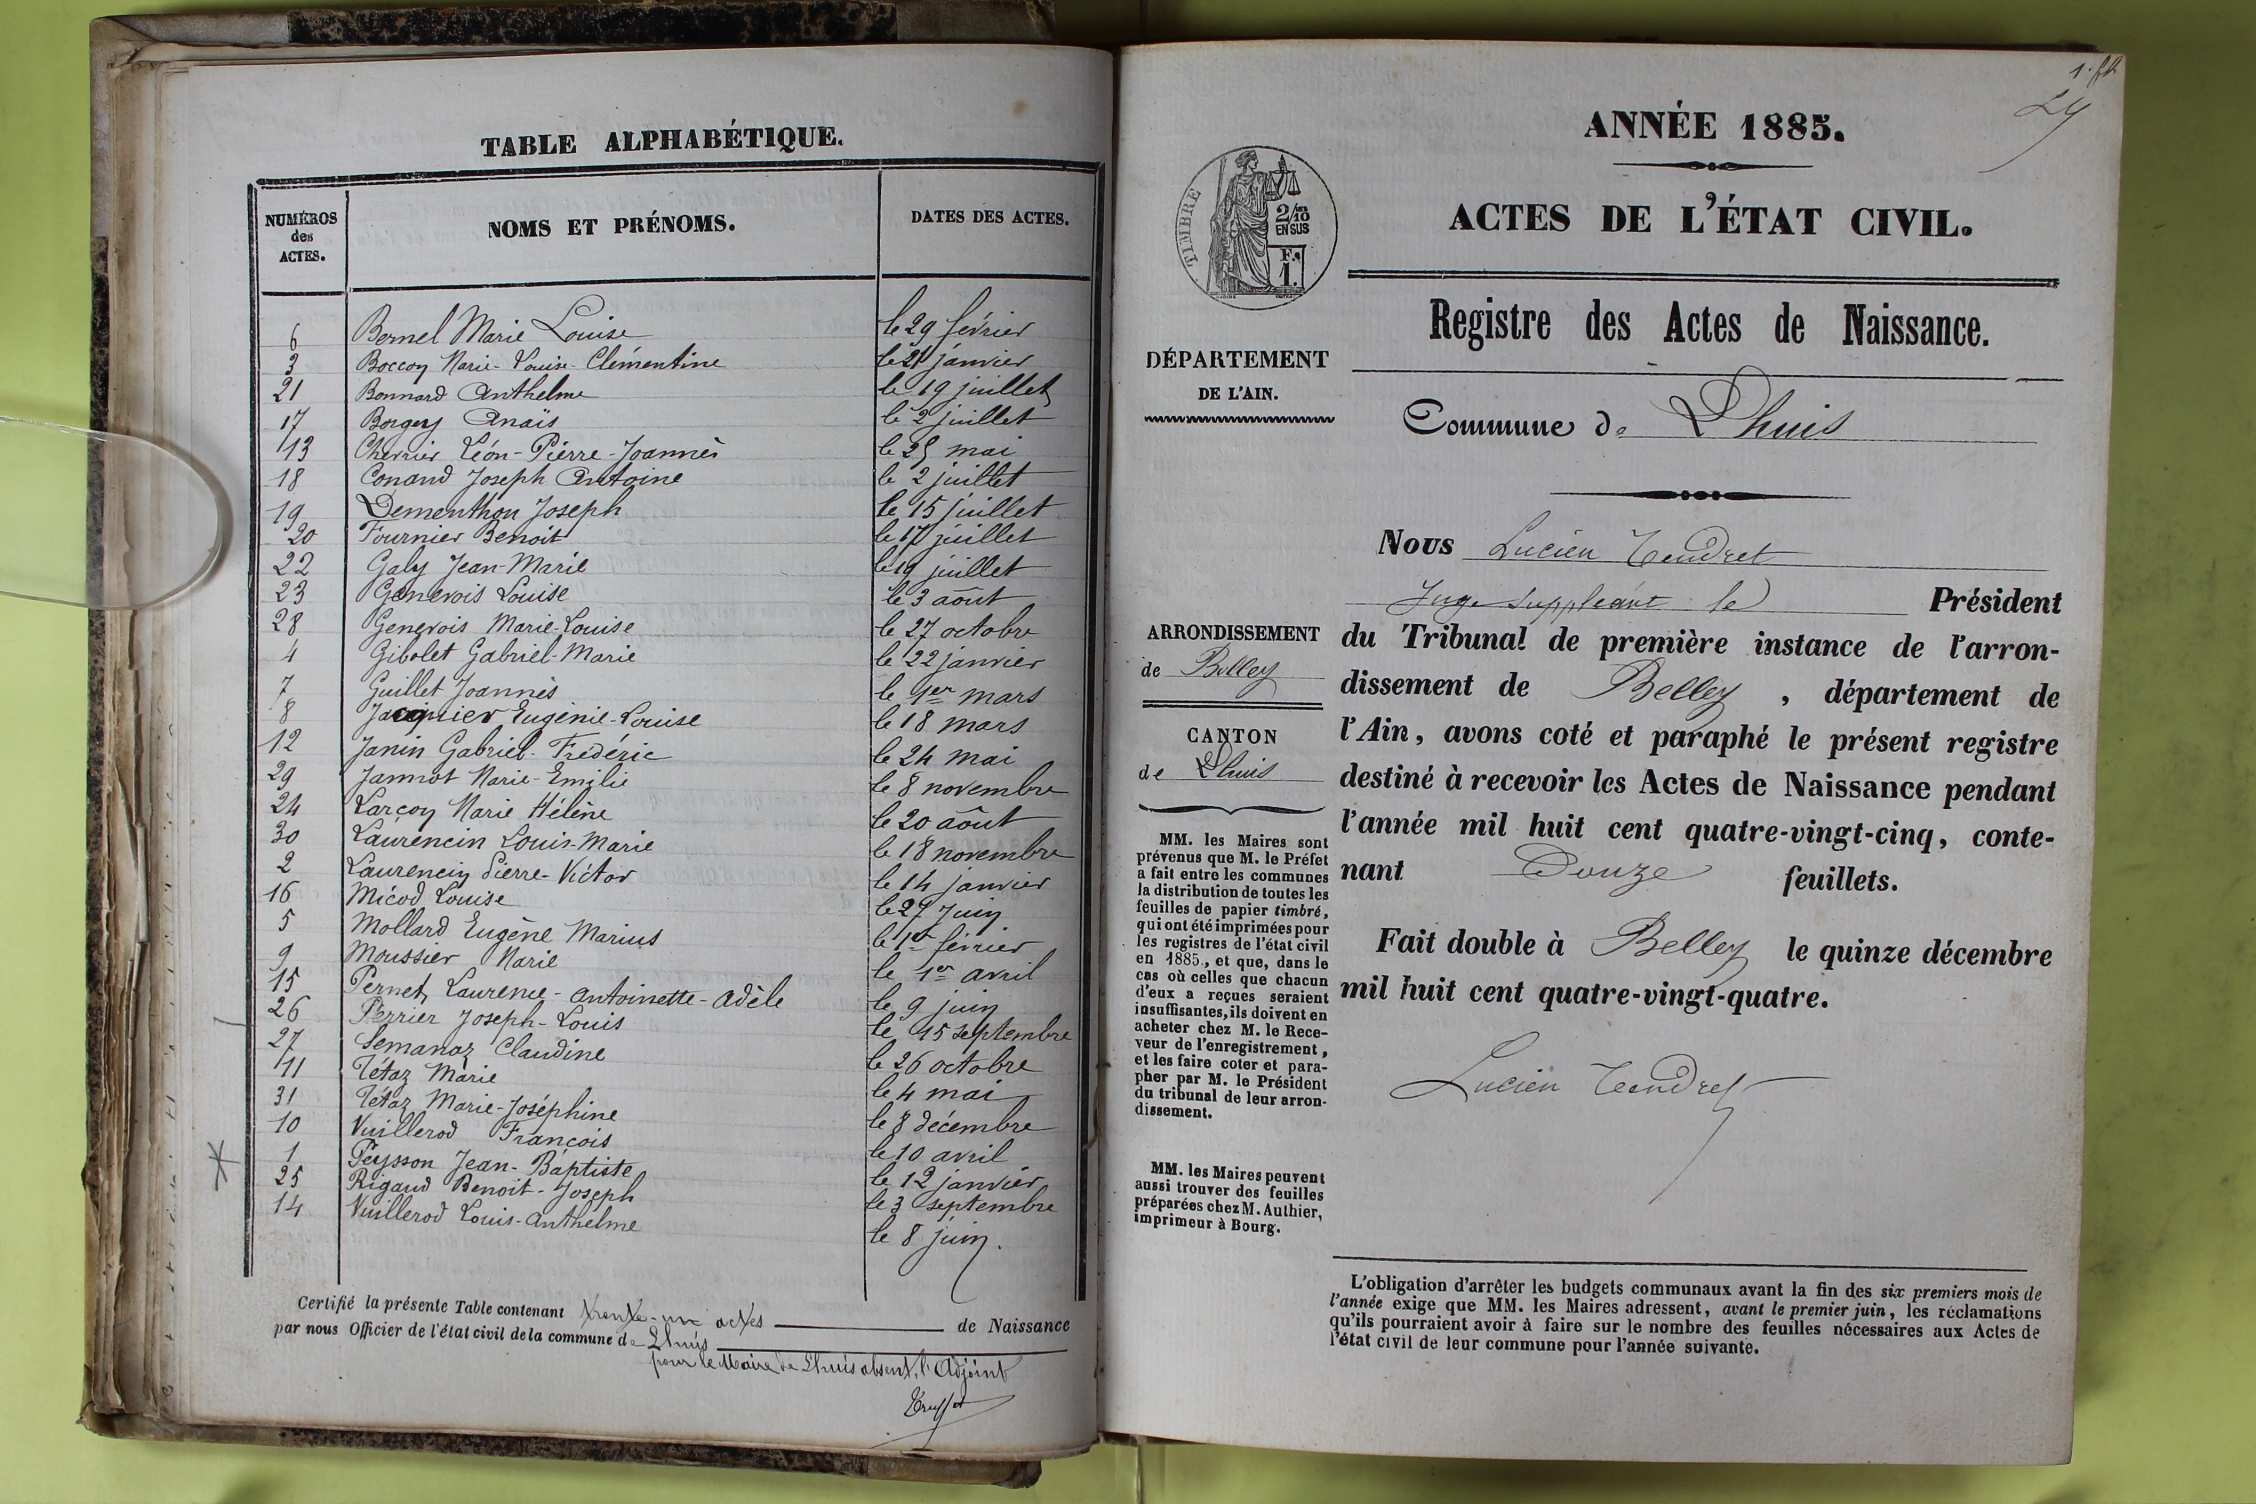 TABLE ALPHABÉTIQUE.
NUMÉROS des ACTES. NOMS ET PRÉNOMS. DATES DES ACTES.
6 Bernel Marie Louise le 29 février
3 Boccoy Marie-Louise-Clémentine le 21 janvier
21 Bonnard Anthelme le 19 juillet
17 Borgey Anaïs le 2 juillet
13 Cherrier Léon-Pierre-Joannès le 25 mai
18 Conand Joseph Antoine le 2 juillet
19 Dementhon Joseph le 15 juillet
20 Fournier Benoit le 17 juillet
22 Galy Jean-Marie le 19 juillet
23 Genevois Louise le 3 août
28 Genevois Marie-Louise le 27 octobre
4 Gibolet Gabriel-Marie le 22 janvier
7 Guillet Joannès le 1er mars
8 Jacquier Eugénie-Louise le 18 mars
12 Janin Gabriel-Frédéric le 24 mai
29 Jannot Marie-Emilie le 8 novembre
24 Larçoy Marie Hélène le 20 août
30 Laurencin Louis-Marie le 18 novembre
2 Laurencin Pierre-Victor le 14 janvier
16 Micod Louise le 27 juin
5 Mollard Eugène Marius le 1er février
9 Moussier Marie le 1er avril
15 Pernet, Laurence-Antoinette-Adèle le 9 juin
26 Perrier Joseph-Louis le 15 septembre
27 Semanaz Claudine le 26 octobre
11 Tétaz Marie le 4 mai
31 Tétaz Marie-Joséphine le 8 décembre
10 Vuillerod François le 10 avril
1 Peysson Jean-Baptiste le 12 janvier
25 Rigaud Benoit-Joseph le 3 septembre
14 Vuillerod Louis-Anthelme le 8 juin.
Certifié la présente Table contenant trente-un actes de Naissance
par nous Officier de l'état civil de la commune de Lhuis
pour le Maire de Lhuis absent, l'Adjoint
ANNÉE 1885.
ACTES DE L'ÉTAT CIVIL.
TIMBRE
2/10 EN SUS
F. 1.
Registre des Actes de Naissance.
DÉPARTEMENT
DE L'AIN.
Commune de Lhuis
Nous Lucien Tendret
Juge suppléant le Président
du Tribunal de première instance de l'arron-
dissement de Belley, département de
l'Ain, avons coté et paraphé le présent registre
destiné à recevoir les Actes de Naissance pendant
l'année mil huit cent quatre-vingt-cinq, conte-
nant Douze feuillets.
Fait double à Belley le quinze décembre
mil huit cent quatre-vingt-quatre.
Lucien Tendret
ARRONDISSEMENT
de Belley
CANTON
de Lhuis
MM. les Maires sont
prévenus que M. le Préfet
a fait entre les communes
la distribution de toutes les
feuilles de papier timbré,
qui ont été imprimées pour
les registres de l'état civil
en 1885, et que, dans le
cas où celles que chacun
d'eux a reçues seraient
insuffisantes, ils doivent en
acheter chez M. le Rece-
veur de l'enregistrement,
et les faire coter et para-
pher par M. le Président
du tribunal de leur arron-
dissement.
MM. les Maires peuvent
aussi trouver des feuilles
préparées chez M. Authier,
imprimeur à Bourg.
L'obligation d'arrêter les budgets communaux avant la fin des six premiers mois de
l'année exige que MM. les Maires adressent, avant le premier juin, les réclamations
qu'ils pourraient avoir à faire sur le nombre des feuilles nécessaires aux Actes de
l'état civil de leur commune pour l'année suivante.